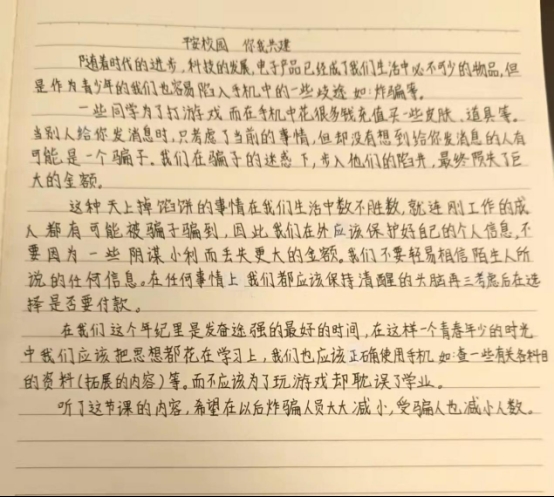 平安校园 你我共建
随着时代的进步,科技的发展,电子产品已经成了我们生活中必不可少的物品,但
是作为青少年的我们也容易陷入手机中的一些歧途 如:炸骗等。
一些同学为了打游戏而在手机中花很多钱充值买一些皮肤、道具等。
当别人给你发消息时,只考虑了当前的事情,但却没有想到给你发消息的人有
可能是一个骗子。我们在骗子的迷惑下,步入他们的陷井,最终损失了巨
大的金额。
这种天上掉馅饼的事情在我们生活中数不胜数,就连刚工作的成
人都有可能被骗子骗到,因此我们在外应该保护好自己的个人信息,不
要因为一些阴谋小利而丢失更大的金额。我们不要轻易相信陌生人所
说的任何信息。在任何事情上我们都应该保持清醒的头脑再三考虑后在选
择是否要付款。
在我们这个年纪里是发奋途强的最好的时间,在这样一个青春年少的时光
中我们应该把思想都花在学习上,我们也应该正确使用手机 如:查一些有关各科目
的资料(拓展的内容)等。而不应该为了玩游戏却耽误了学业。
听了这节课的内容,希望在以后炸骗人员大大减小,受骗人也减小人数。